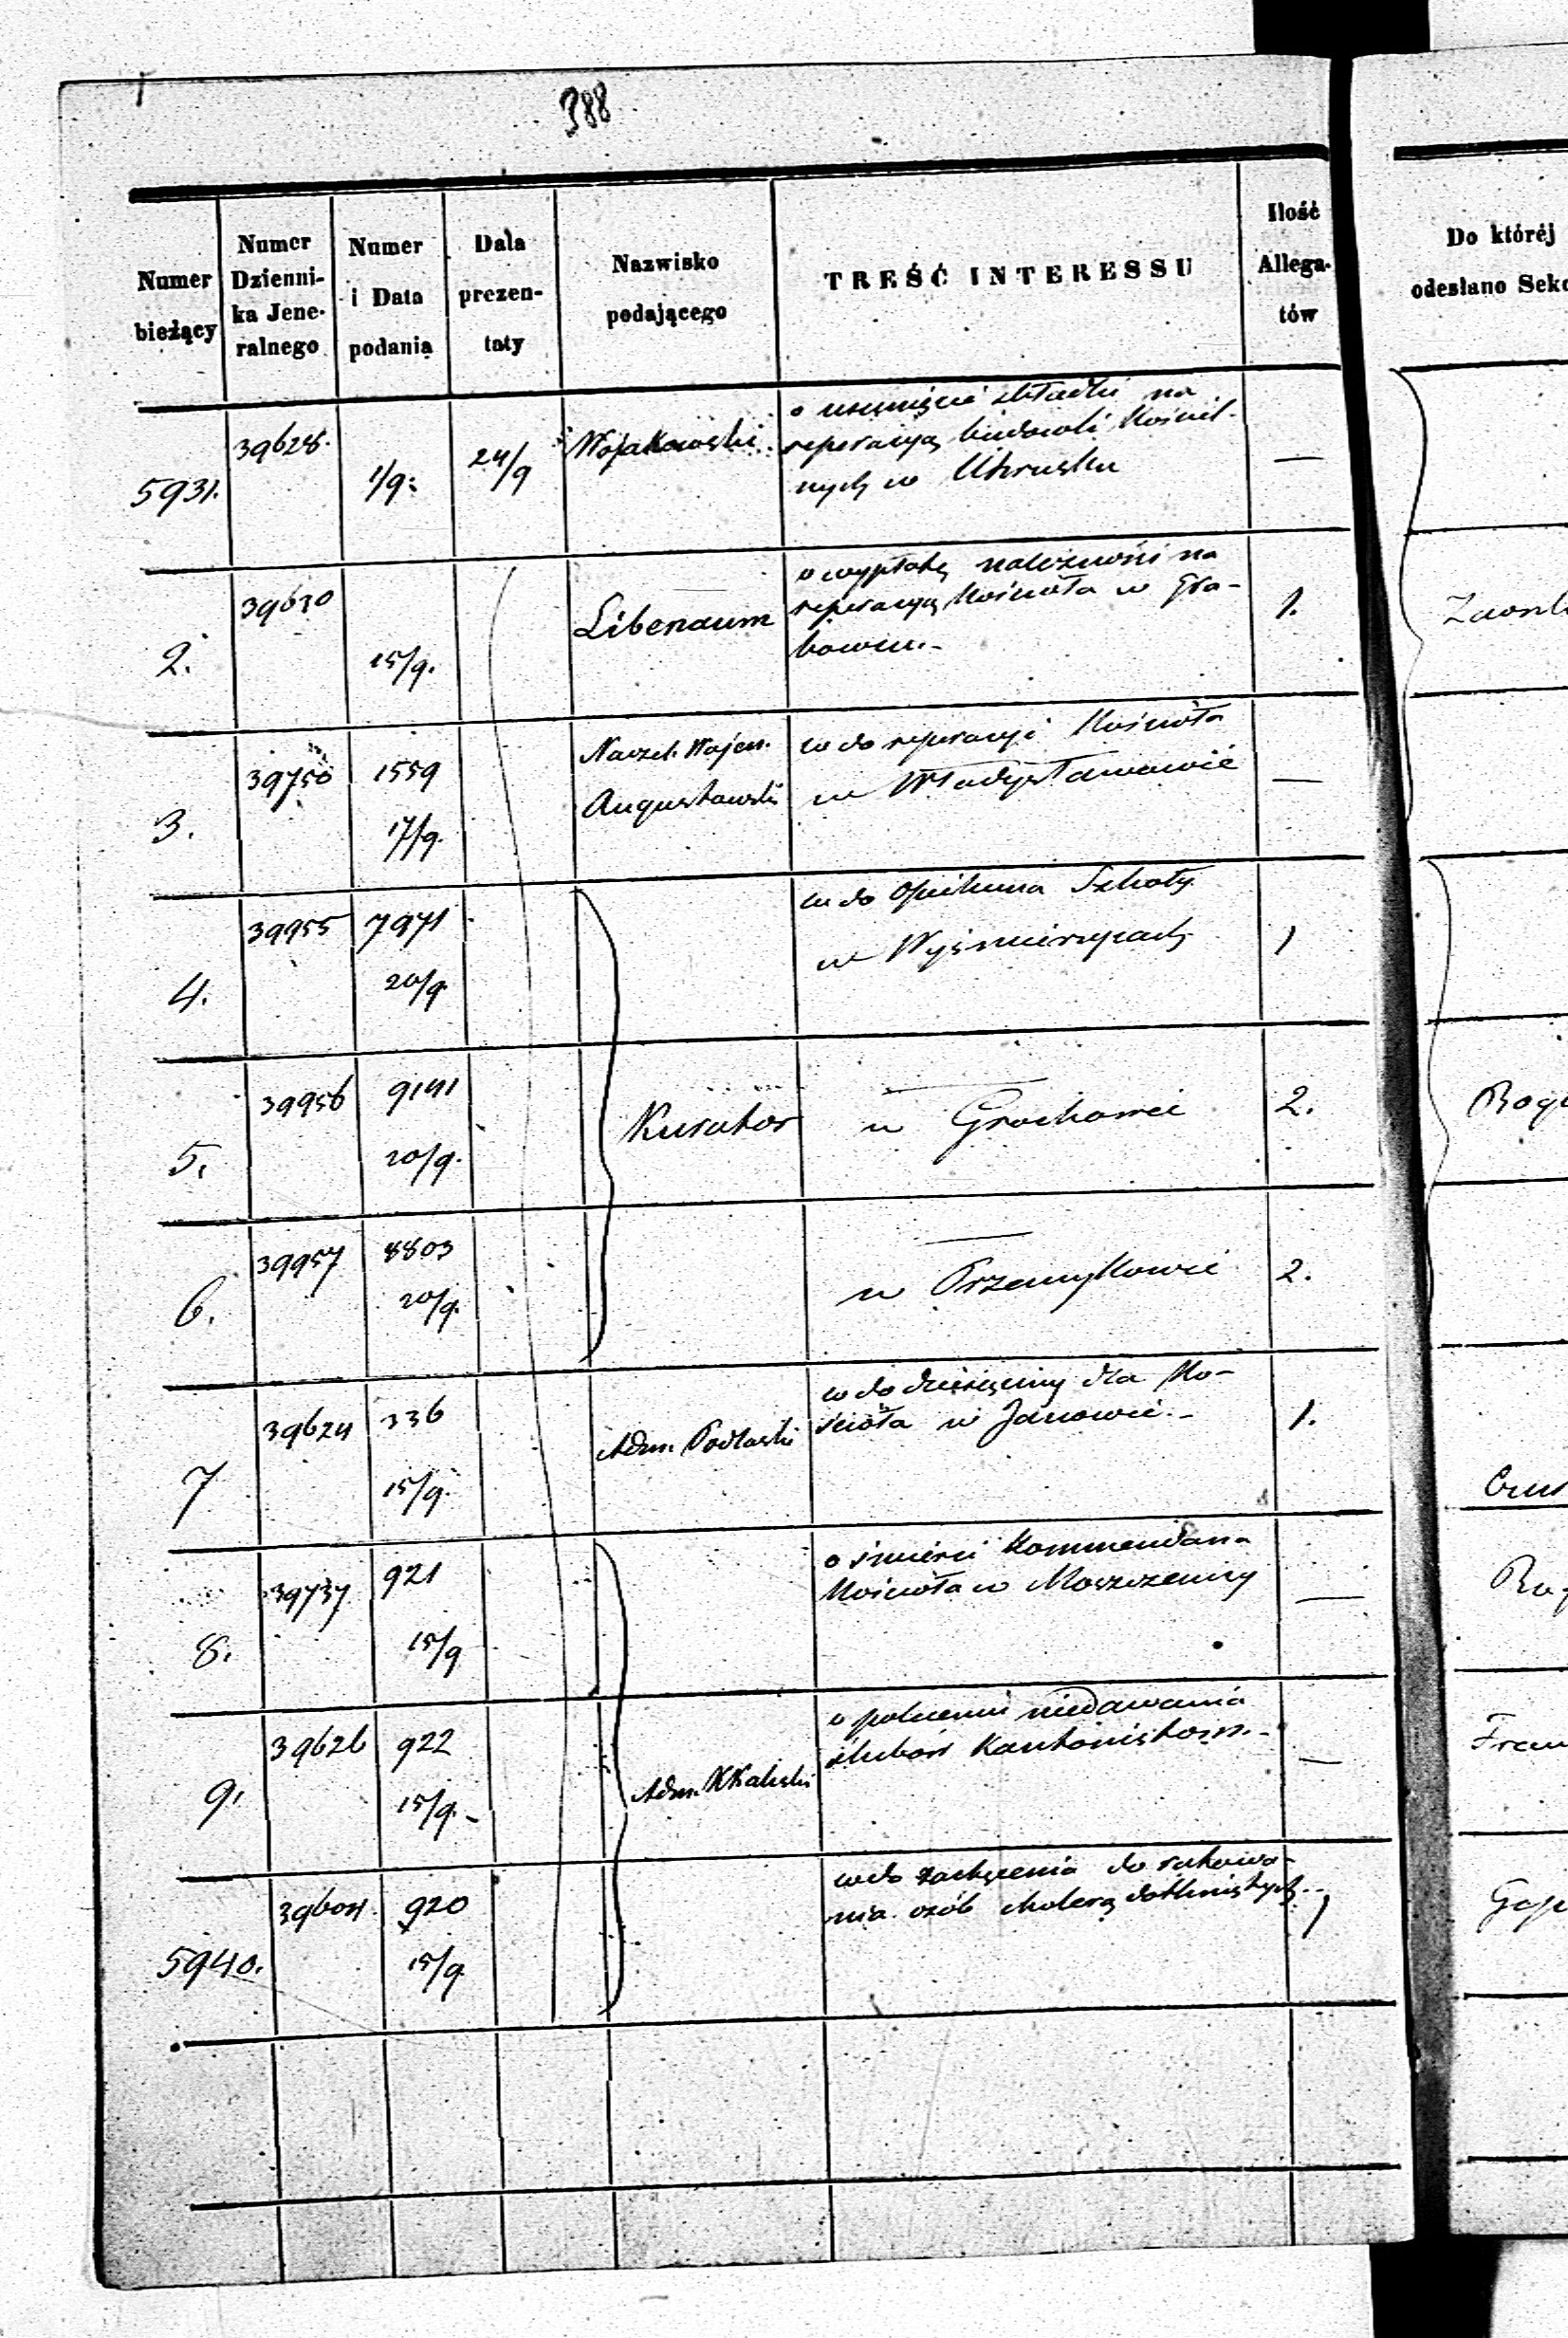 388
Numer
bieżący
Numer
Dzienni-
ka Jene-
ralnego
Numer
i Data
podania
Data
prezen-
taty
Nazwisko
podającego
TREŚĆ INTERESSU
Ilość
Allega-
tów
Do któréj
odesłano
5931.
39628.
1/9.
24/9
Wojakowski
o usunięcie składki na
reperacyą budowli Kościel-
nych w Uhrusku
—
2.
39630
15/9.
Libenaum
o wypłatę należności na
reperacyą Kościoła w Gra-
bowcu.-
1.
3.
39750
1559
17/9.
Naczel. Wojen.
Augustowski
co do reperacyi Kościoła
w Władysławowie
—
4.
39955
7971
20/9.
co do Opiekuna Szkoły
w Wyśmierzycach
1
5.
39956
9141
20/9.
Kurator
— w Grochowie
2.
6.
39957
8803
20/9.
— w Przemykowie
2.
7
39624
336
15/9.
Adm. Podlaski
co do dziesięciny dla Ko-
ścioła w Janowie.-
1.
8.
39737
921
15/9
o śmierci Kommendana
Kościoła w Moszczenicy
—
9.
39626
922
15/9.-
Adm. KKaliski
o poleceniu niedawania
ślubów Kantonistom.-
—
5940.
39604.
920
15/9
co do zachęcenia do ratowa-
nia osób cholerą dotkniętych.-
1